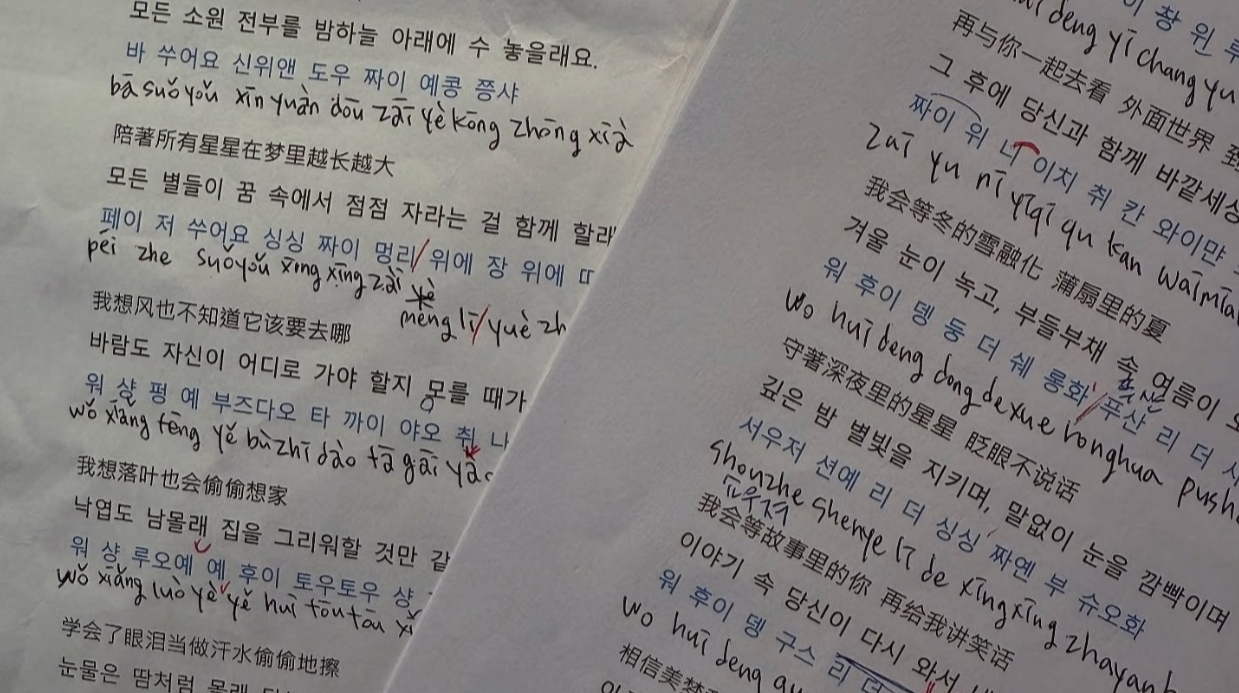 모든 소원 전부를 밤하늘 아래에 수 놓을래요.
바 쑤어요 신위앤 도우 짜이 예콩 쯩샤
bā suǒyǒu xīn yuàn dōu zāi yè kōng zhōng xià
陪著所有星星在梦里越长越大
모든 별들이 꿈 속에서 점점 자라는 걸 함께 할래
페이 저 쑤어요 싱싱 짜이 멍리/위에 장 위에 따
péi zhe suǒyǒu xīng xīng zài mèng lǐ/yuè zh
我想风也不知道它该要去哪
바람도 자신이 어디로 가야 할지 모를 때가
워 샹 펑 예 부즈다오 타 까이 야오 취 나
wǒ xiǎng fēng yě bùzhī dào tā gāi yào
我想落叶也会偷偷想家
낙엽도 남몰래 집을 그리워할 것만 같
워 샹 루오예 예 후이 토우토우 샹
wǒ xiǎng luò yè yě huì tōutōu xi
学会了眼泪当做汗水偷偷地擦
눈물은 땀처럼 몰래
이 창 원
deng yī chang yu
再与你一起去看 外面世界
그 후에 당신과 함께 바깥세상
짜이 위 니 이치 취 칸 와이만
zuī yu nī yīqī qu kan waīmīa
我会等冬的雪融化 蒲扇里的夏
겨울 눈이 녹고, 부들부채 속 여름이 오
워 후이 덩 동 더 쉐 롱화/푸산 리 더 샤
wo huī deng dong de xue ronghua pusha
守著深夜里的星星 眨眼不说话
깊은 밤 별빛을 지키며, 말없이 눈을 깜빡이며
서우저 션예 리 더 싱싱 짜옌 부 슈오화
shouzhe shenye lī de xīngxīng zhayan b
我会等故事里的你 再给我讲笑话
이야기 속 당신이 다시 와서
워 후이 덩 구스 리 더
wo huī deng gu
相信美梦